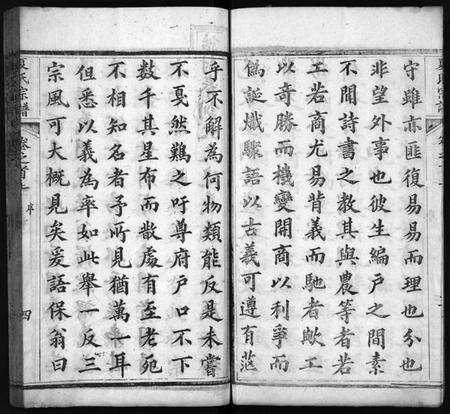 守雖亦匪復易易而理也分也
非望外事也彼生編戶之間素
不聞詩書之教其與農等者若
工若商尤易背義而馳者歟工
以奇勝而機變開商以利爭而
偽誕熾驟語以古義可遵有茫
乎不解為何物類能反是未嘗
不戛然難之吁尊府戶口不下
數千其星布而散處有至老死
不相知名者予所見猶萬一耳
但悉以義為率如此舉一反三
宗風可大概見矣爰語保翁曰
夏氏宗譜
卷之首
序
四